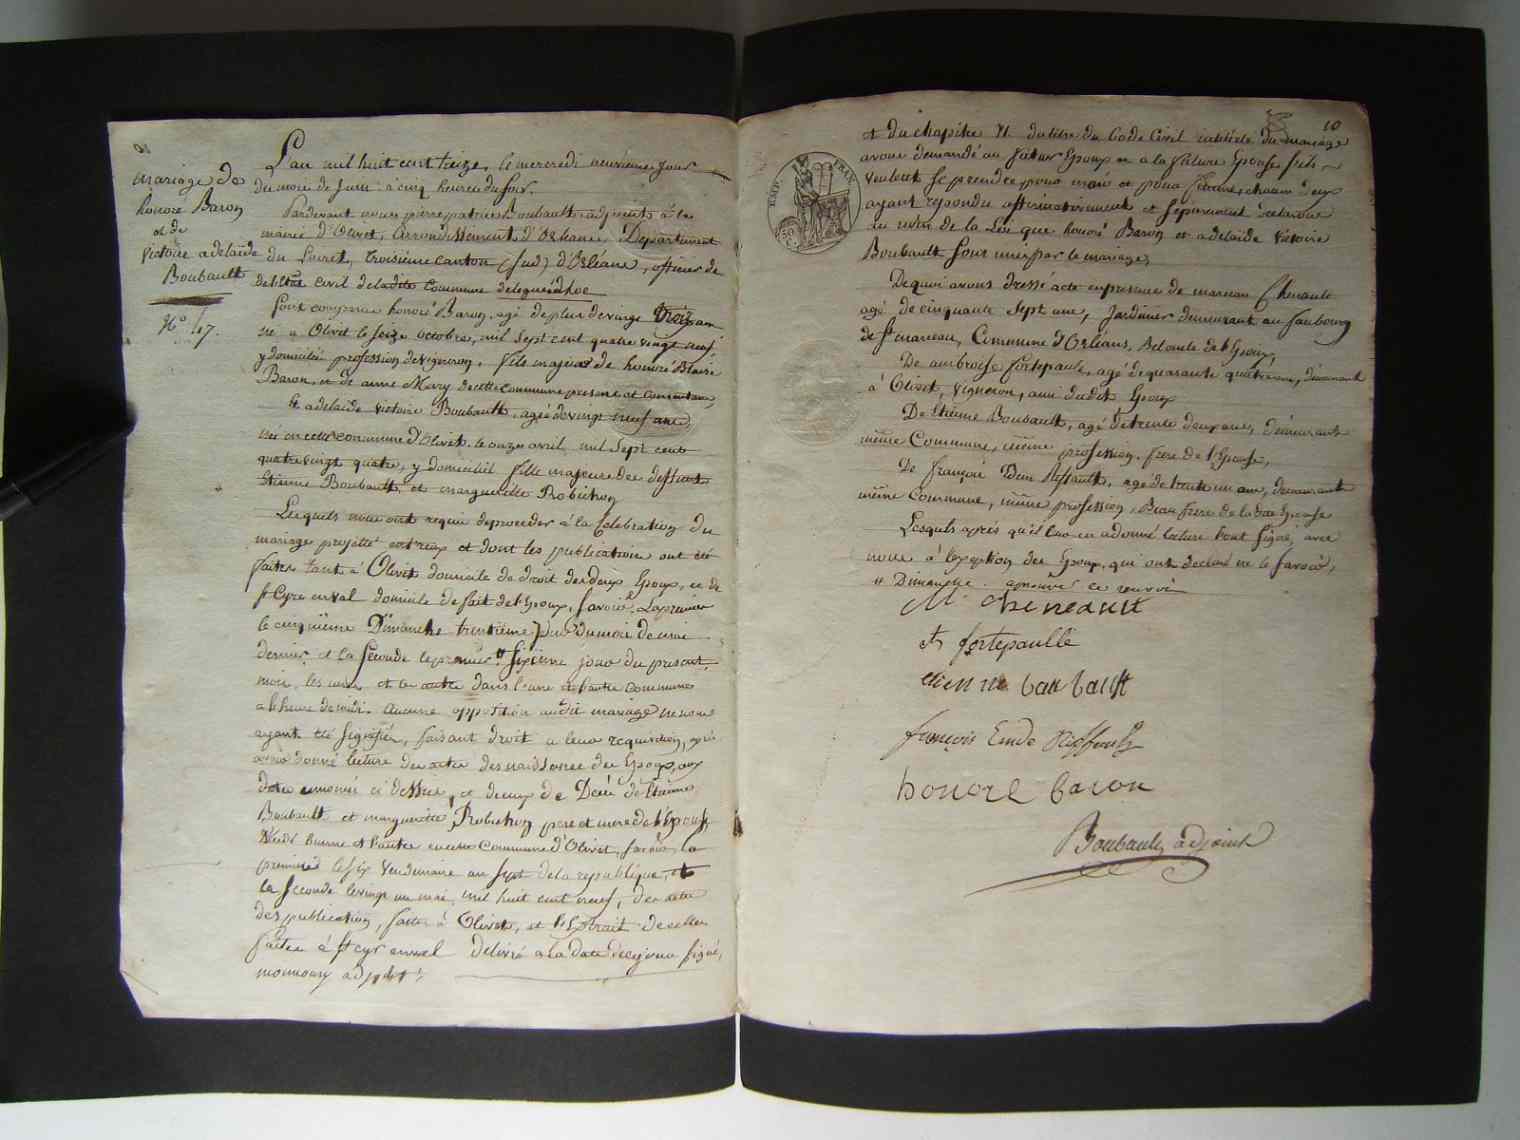 mariage de
honoré Baron
et de
Victoire adelaïde
Boubault
N.o 17.
L'an mil huit cent treize, le mercredi neuvieme jour
du mois de Juin à cinq heures du soir.
Pardevant nous pierre patrice Boubault adjoint à la
mairie d'Olivet, Arrondissement d'Orléans, Département
du Loiret, troisieme canton (sud) d'Orléans, officier de
de l'Etat Civil de ladite Commune delegué ad hoc
Sont comparus honoré Baron, agé de plus de vingt trois ans
né à Olivet le seize octobre, mil sept cent quatre vingt neuf
y domicilié profession de vigneron, fils majeur de honoré Blaise
Baron, et de anne Mary de cette commune presens et consentans,
Et adelaïde victoire Boubault, agée de vingt neuf ans,
née en cette commune d'Olivet, le onze avril mil sept cent
quatre vingt quatre, y domiciliée fille majeure des deffunts
Etienne Boubault, et marguerite Robichon
Lesquels nous ont requis de proceder à la Celebration du
mariage projetté entr'eux et dont les publications ont été
faites tant à Olivet domicile de droit des deux Epoux, et de
St Cyr en val domicile de fait de l'Epoux, Savoir, La premiere
le cinquieme Dimanche trentieme jour du mois de mai
dernier, et la Seconde le premier " Sixieme jour du present
mois, les unes et les autres dans l'une et l'autre communes
a l'heure de midi. Aucune opposition audit mariage ne nous
ayant été signifiée, faisant droit a leur requisition, après
avoir donné lecture des actes de naissance des Epoux, aux
dates enoncés ci dessus, et de ceux de Décès de Etienne
Boubault et marguerite Robichon pere et mere de l'Epouse
décédés l'une et l'autre en cette Commune d'Olivet, Savoir, le
premier le six Vendemiaire an sept de la republique, et
la Seconde le vingt un mai, mil huit cent neuf, des actes
des publications, faites à Olivet, et l'Extrait de celles
faites à St cyr en val delivré a la date de ce jour signé,
adjoint
10
EMP. FRAN.
et du chapitre VI du titre du Code Civil intitulé du mariage
avons demandé au futur Epoux et a la future Epouse s'ils
veulent se prendre pour mari et pour femme, chacun d'eux
ayant repondu affirmativement et séparement declarons
au nom de la Loi que honoré Baron et adelaïde Victoire
Boubault sont unis par le mariage,
De quoi avons dressé acte en presence de
agé de cinquante sept ans, Jardinier demeurant au faubourg
de St marceau, Commune d'Orléans, de l'Epoux,
De ambroise fortepaule, agé de quarante quatre ans, demeurant
à Olivet, Vigneron, ami dudit Epoux
De Etienne Boubault, agé de trente deux ans, demeurant
même Commune, même profession, frere de l'Epouse,
De françois agé de trente un ans, demeurant
même Commune, même profession, Beau frere de ladite Epouse
Lesquels après qu'il leur en a donné lecture l'ont signé, avec
nous à l'exception des Epoux, qui ont declaré ne le savoir,
" Dimanche. approuvé ce renvoi
M. Cheneault
A fortepaulle
etienne baubault
françois
honore baron
Boubault adjoint